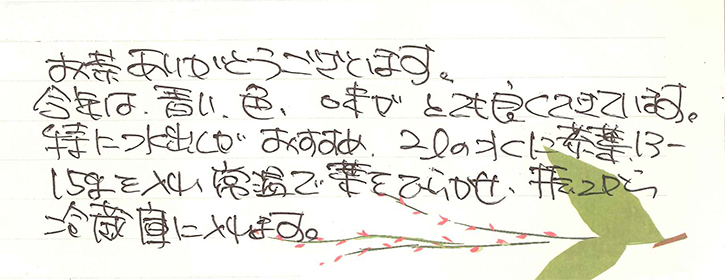 お茶ありがとうございます。
今年は、香り、色、味がとても良くできています。
特に水出しがおすすめ、2ℓの水に茶葉13~
15gを入れ、常温で葉をひらかせ、葉
冷蔵庫に入れます。